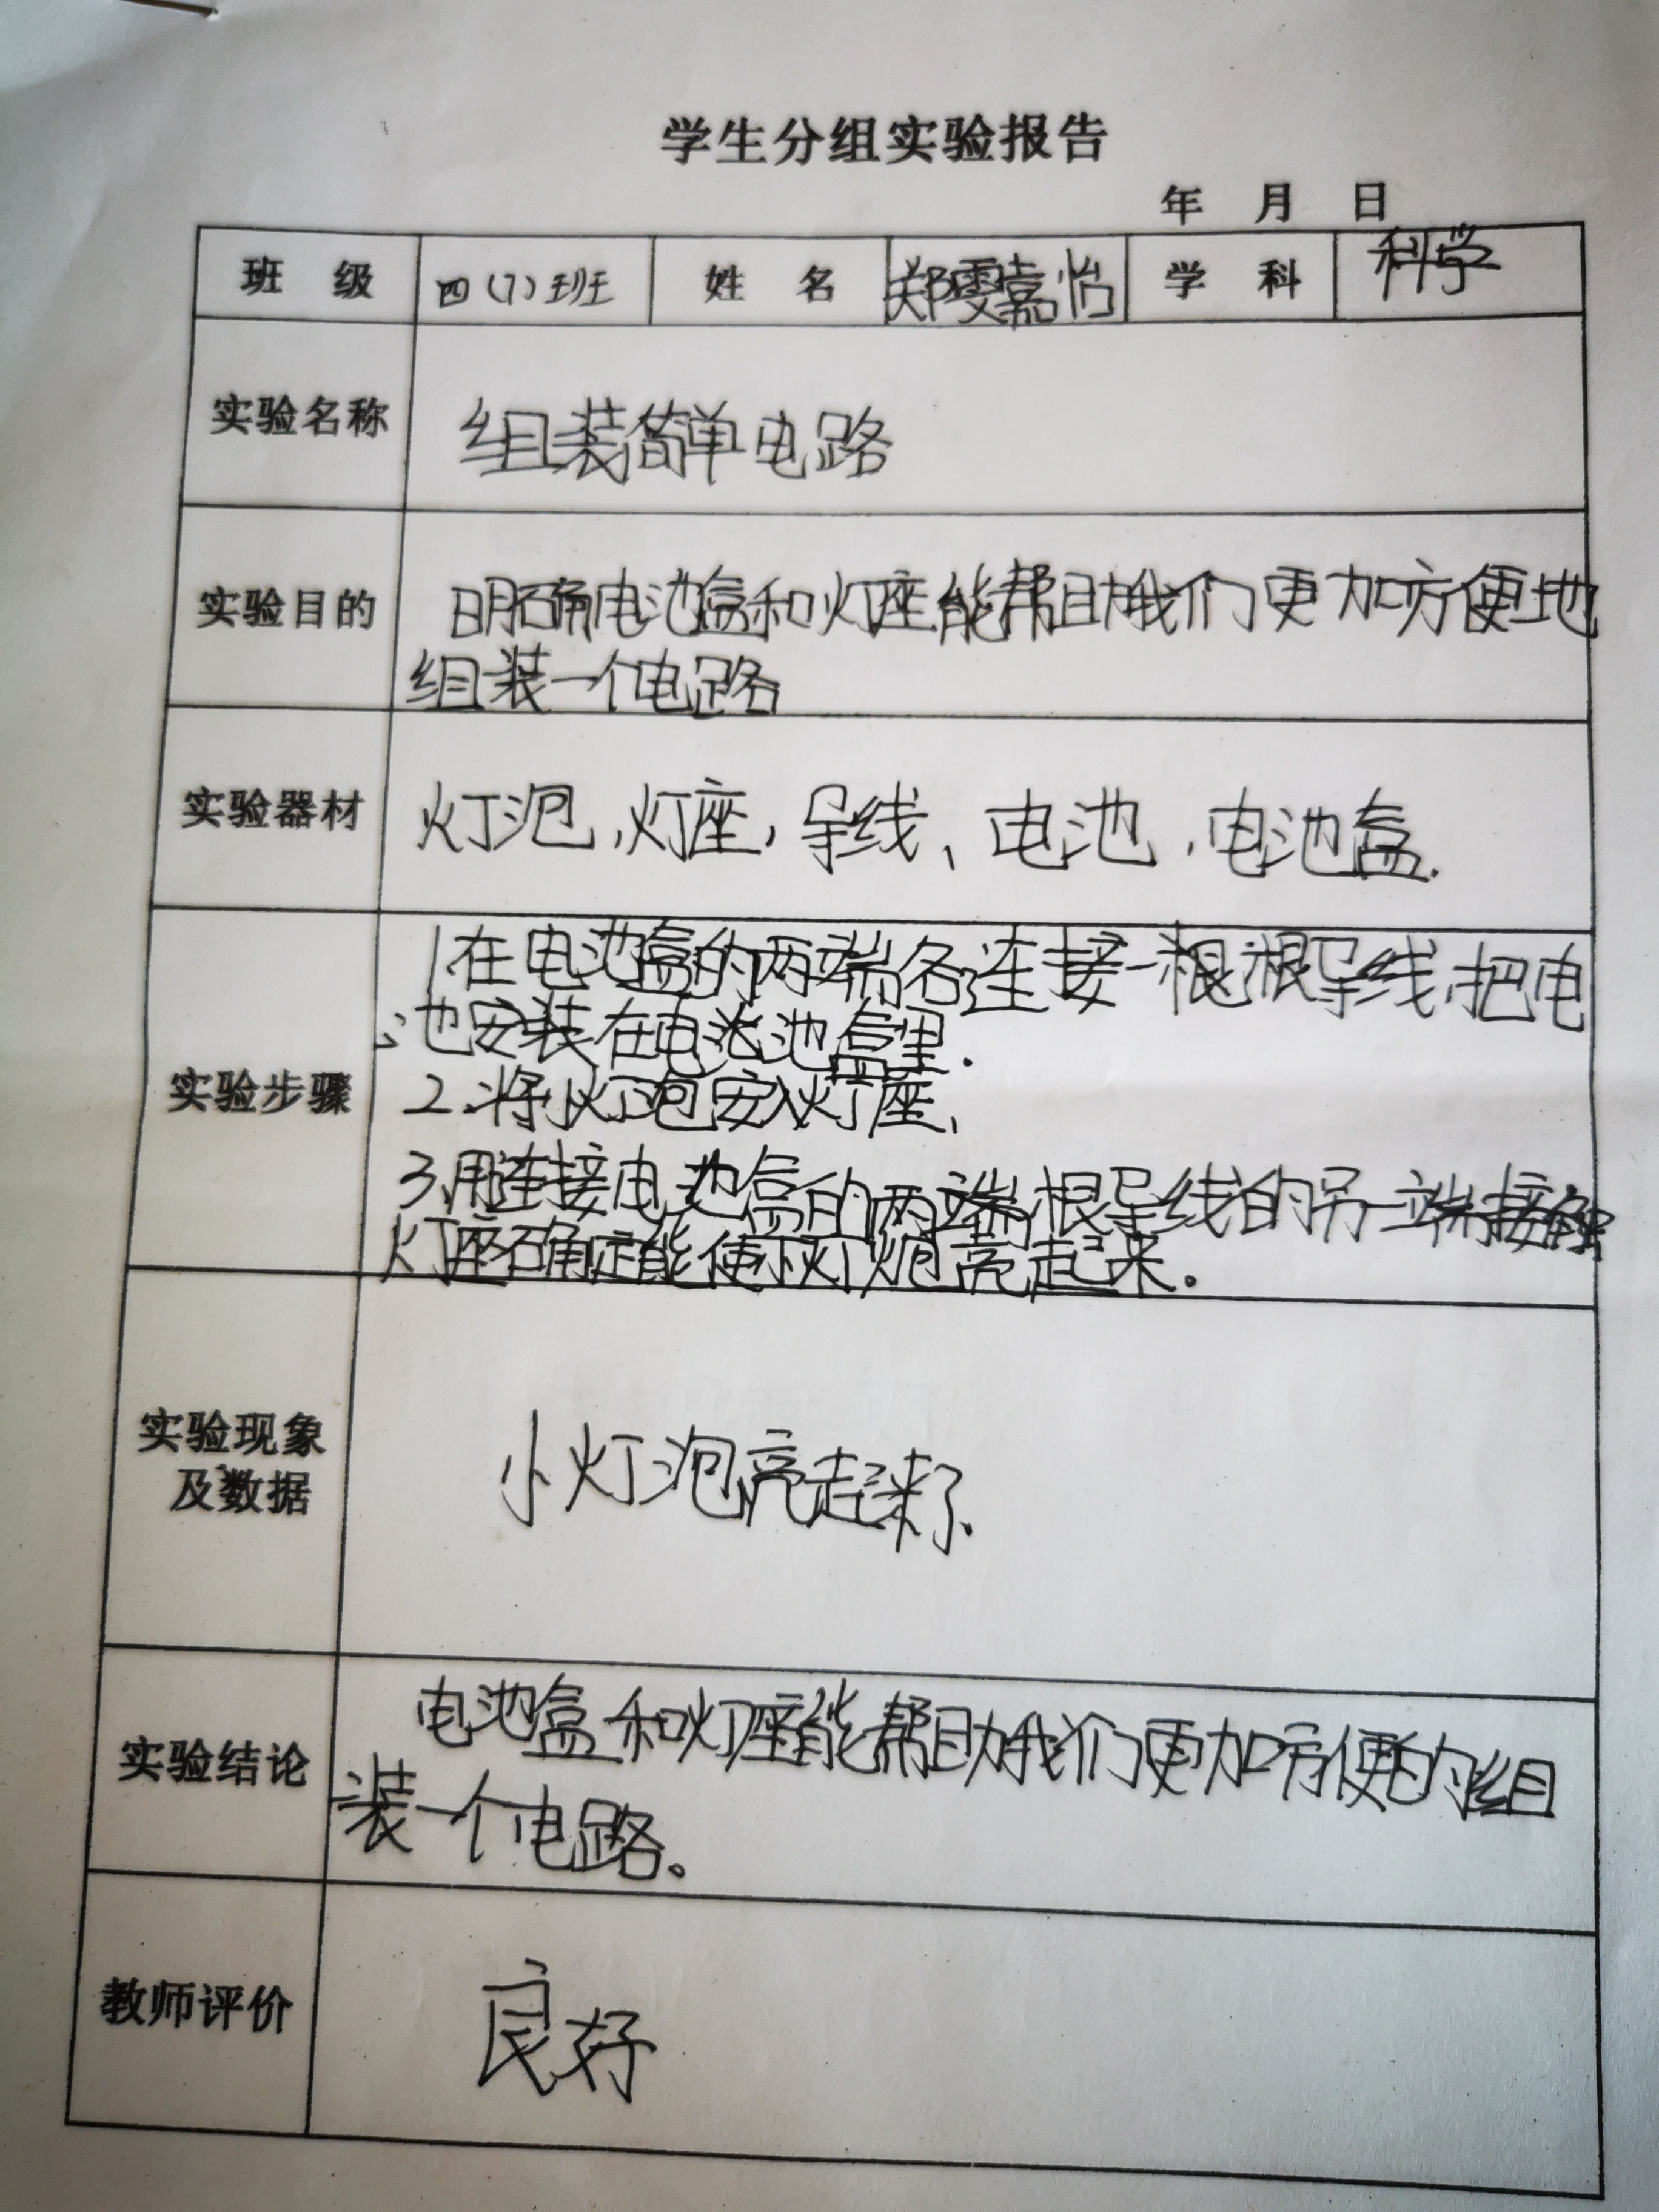 学生分组实验报告
年 月 日
班 级 四(7)班 姓 名 郑雯嘉怡 学 科 科学
实验名称 组装简单电路
实验目的 明确电池盒和灯座能帮助我们更加方便地
组装一个电路
实验器材 灯泡,灯座,导线、电池,电池盒.
1在电池盒的两端各连接一根根导线,把电
池安装在电池盒里.
实验步骤
2.将小灯泡安入灯座、
3.用连接电池盒的两端根导线的另一端接触
灯座确定能使小灯炮亮起来。
实验现象
及数据
小灯泡亮起来了.
实验结论 电池盒和灯座能帮助我们更加方便的组
装一个电路。
教师评价 良好